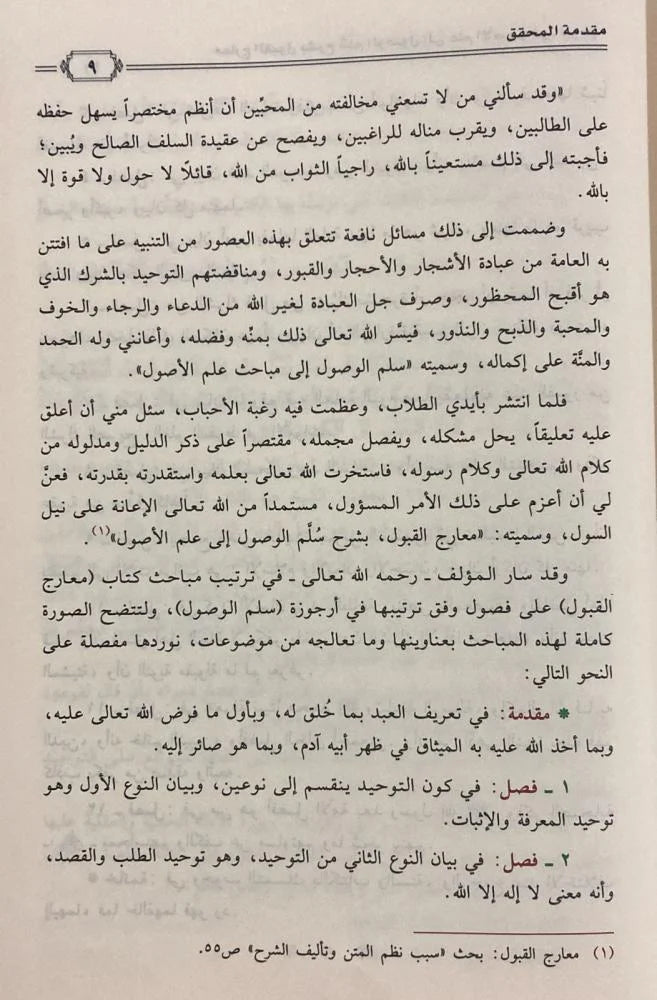 مقدمة المحقق
٩
«وقد سألني من لا تسعني مخالفته من المحبِّين أن أنظم مختصراً يسهل حفظه
على الطالبين، ويقرب مناله للراغبين، ويفصح عن عقيدة السلف الصالح ويُبين؛
فأجبته إلى ذلك مستعيناً بالله، راجياً الثواب من الله، قائلًا لا حول ولا قوة إلا
بالله.
وضممت إلى ذلك مسائل نافعة تتعلق بهذه العصور من التنبيه على ما افتتن
به العامة من عبادة الأشجار والأحجار والقبور، ومناقضتهم التوحيد بالشرك الذي
هو أقبح المحظور، وصرف جل العبادة لغير الله من الدعاء والرجاء والخوف
والمحبة والذبح والنذور، فيسَّر الله تعالى ذلك بمنِّه وفضله، وأعانني وله الحمد
والمنَّة على إكماله، وسميته «سلم الوصول إلى مباحث علم الأصول».
فلما انتشر بأيدي الطلاب، وعظمت فيه رغبة الأحباب، سئل مني أن أعلق
عليه تعليقاً، يحل مشكله، ويفصل مجمله، مقتصراً على ذكر الدليل ومدلوله من
كلام الله تعالى وكلام رسوله، فاستخرت الله تعالى بعلمه واستقدرته بقدرته، فعنَّ
لي أن أعزم على ذلك الأمر المسؤول، مستمداً من الله تعالى الإعانة على نيل
السول، وسميته: «معارج القبول، بشرح سُلَّم الوصول إلى علم الأصول»(١).
وقد سار المؤلف ـ رحمه الله تعالى ـ في ترتيب مباحث كتاب (معارج
القبول) على فصول وفق ترتيبها في أرجوزة (سلم الوصول)، ولتتضح الصورة
كاملة لهذه المباحث بعناوينها وما تعالجه من موضوعات، نوردها مفصلة على
النحو التالي:
* مقدمة: في تعريف العبد بما خُلق له، وبأول ما فرض الله تعالى عليه،
وبما أخذ الله عليه به الميثاق في ظهر أبيه آدم، وبما هو صائر إليه.
١ ـ فصل: في كون التوحيد ينقسم إلى نوعين، وبيان النوع الأول وهو
توحيد المعرفة والإثبات.
٢ ـ فصل: في بيان النوع الثاني من التوحيد، وهو توحيد الطلب والقصد،
وأنه معنى لا إله إلا الله.
(١) معارج القبول: بحث «سبب نظم المتن وتأليف الشرح» ص٥٥.